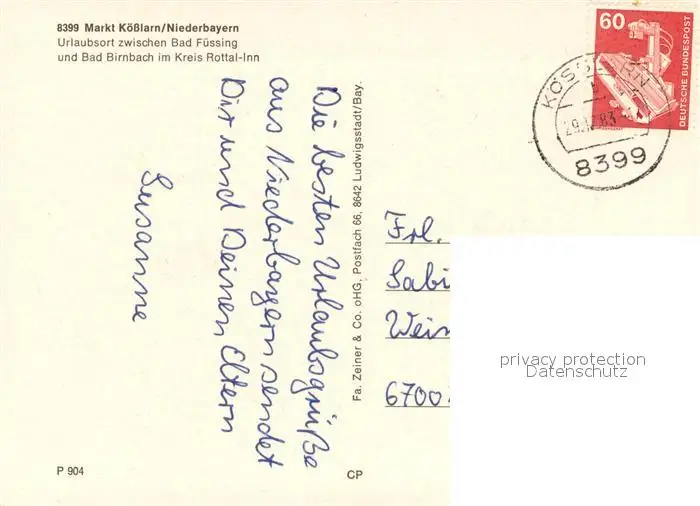 8399 Markt Kößlarn/Niederbayern
Urlaubsort zwischen Bad Füssing
und Bad Birnbach im Kreis Rottal-Inn
Die besten Urlaubsgrüße
aus Niederbayern sendet
Dir und Deinen Eltern
Susanne
Fa. Zeiner & Co. oHG, Postfach 66, 8642 Ludwigsstadt/Bay.
60
DEUTSCHE BUNDESPOST
8399
Frl.
Sabi
Wein
6700
privacy protection
Datenschutz
P 904
CP